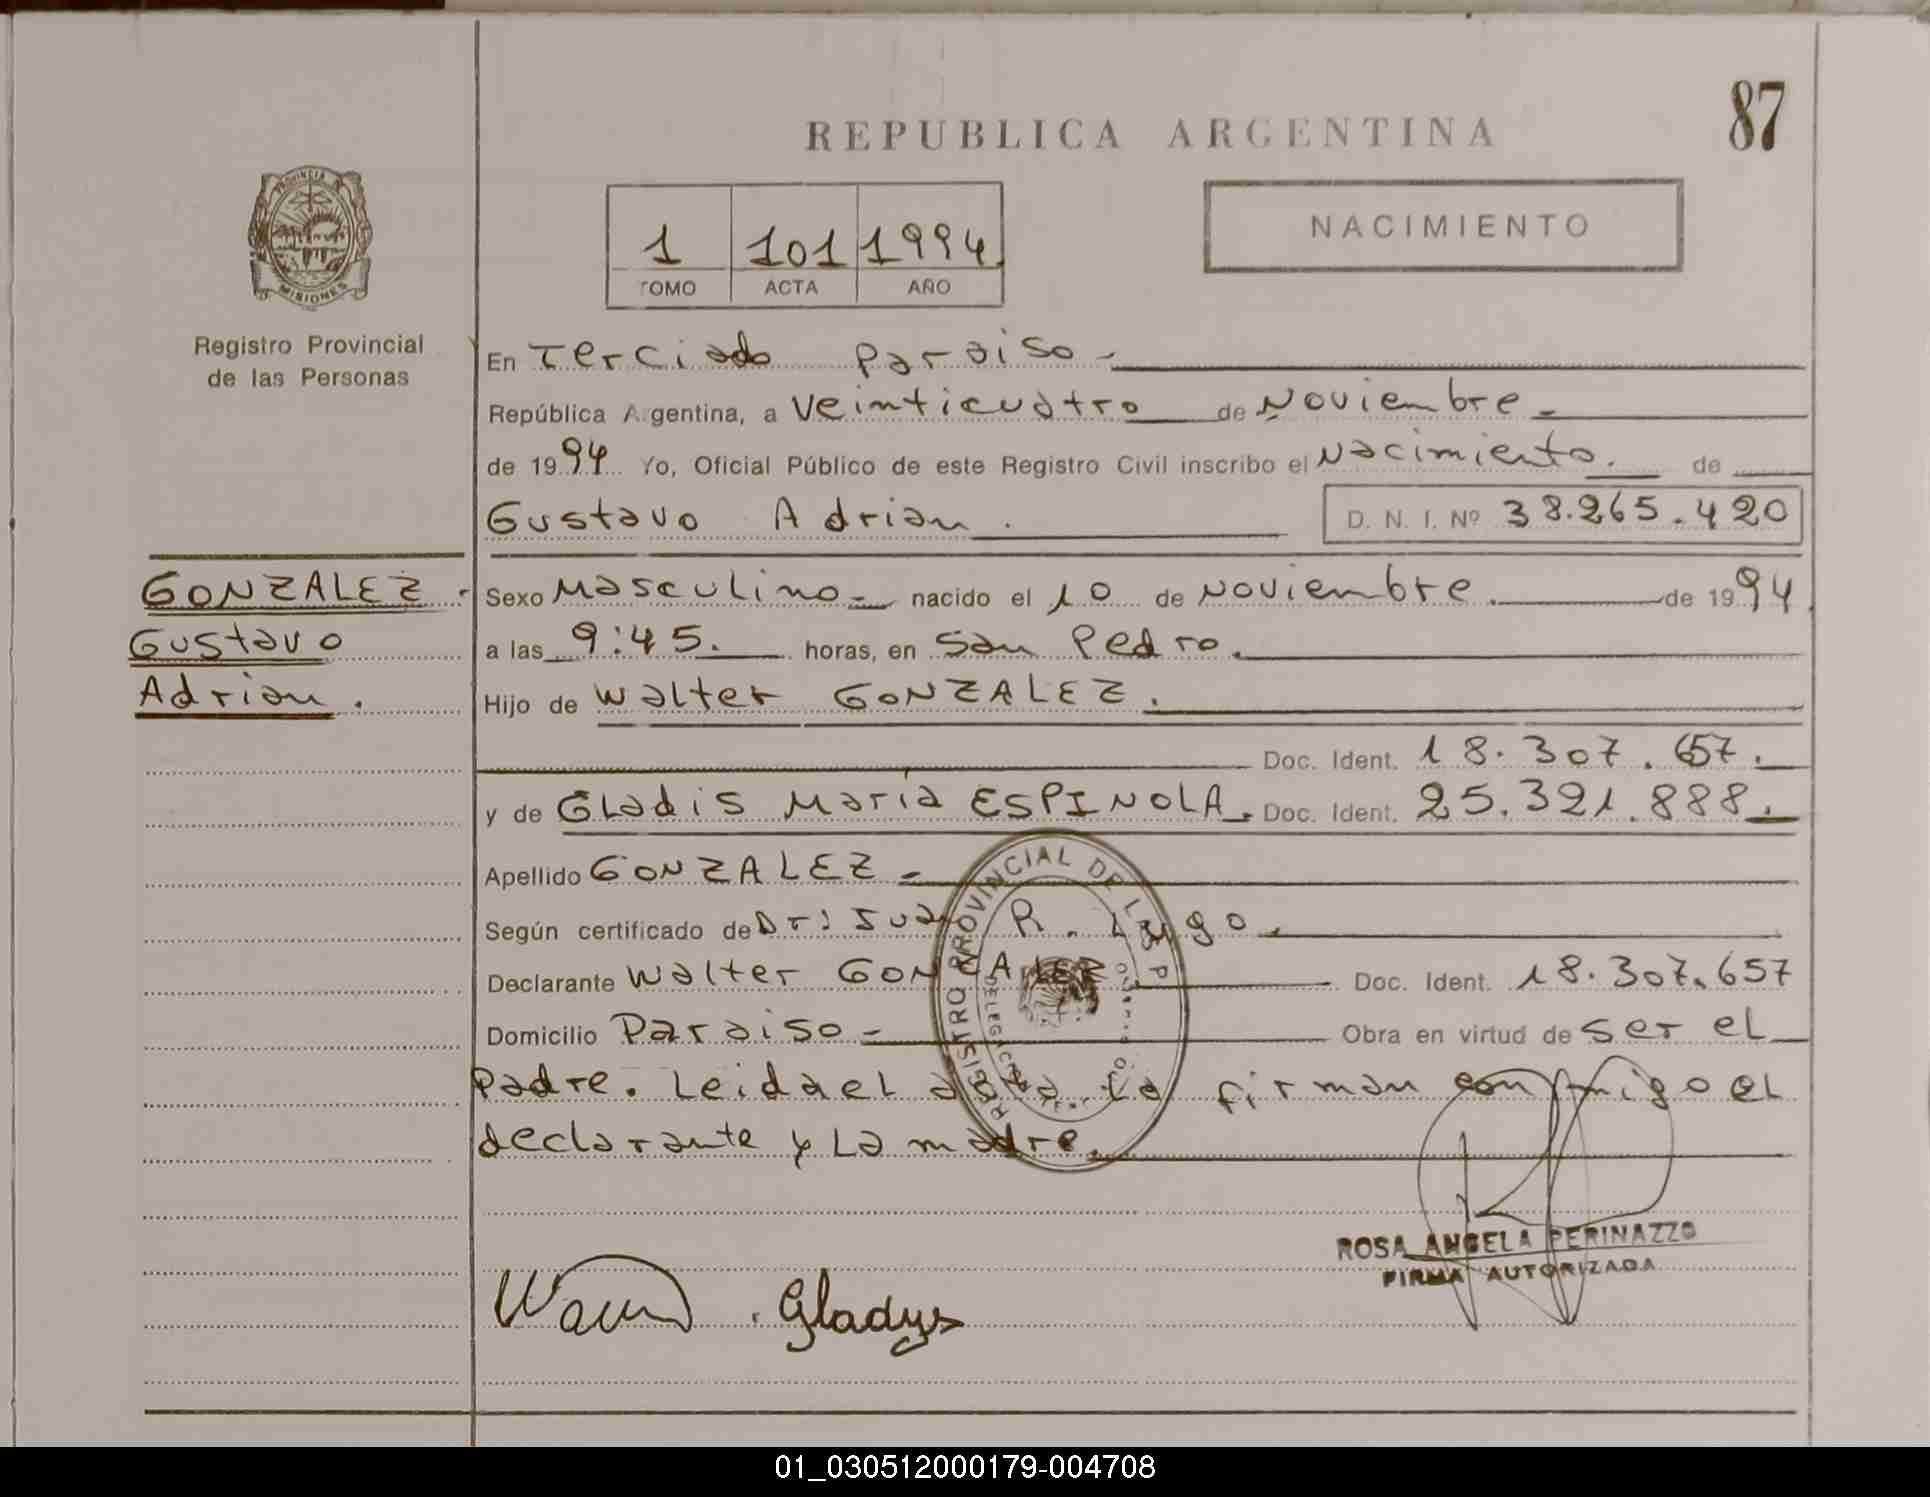 87
REPUBLICA ARGENTINA
1 101 1994
TOMO ACTA AÑO
NACIMIENTO
PROVINCIA DE
MISIONES
Registro Provincial
de las Personas
En Terciado Paraiso -
República Argentina, a Veinticuatro de Noviembre -
de 1994 Yo, Oficial Público de este Registro Civil inscribo el Nacimiento. de
Gustavo Adrian. D. N. I. Nº 38.265.420
GONZALEZ -
Gustavo
Adrian.
Sexo Masculino - nacido el 10 de Noviembre. de 1994
a las 9:45. horas, en San Pedro.
Hijo de Walter GONZALEZ.
Doc. Ident. 18.307.657.
y de GLadis Maria ESPINOLA. Doc. Ident. 25.321.888.
Apellido GONZALEZ -
Según certificado de Dr: R. Lugo.
Declarante Walter GONZALEZ Doc. Ident. 18.307.657
Domicilio Paraiso - Obra en virtud de ser el
Padre. Leida el acta La firman conmigo el
declarante y La madre.
REGISTRO PROVINCIAL DE LAS P
Gladys
ROSA ANGELA PERINAZZO
FIRMA AUTORIZADA
01_030512000179-004708